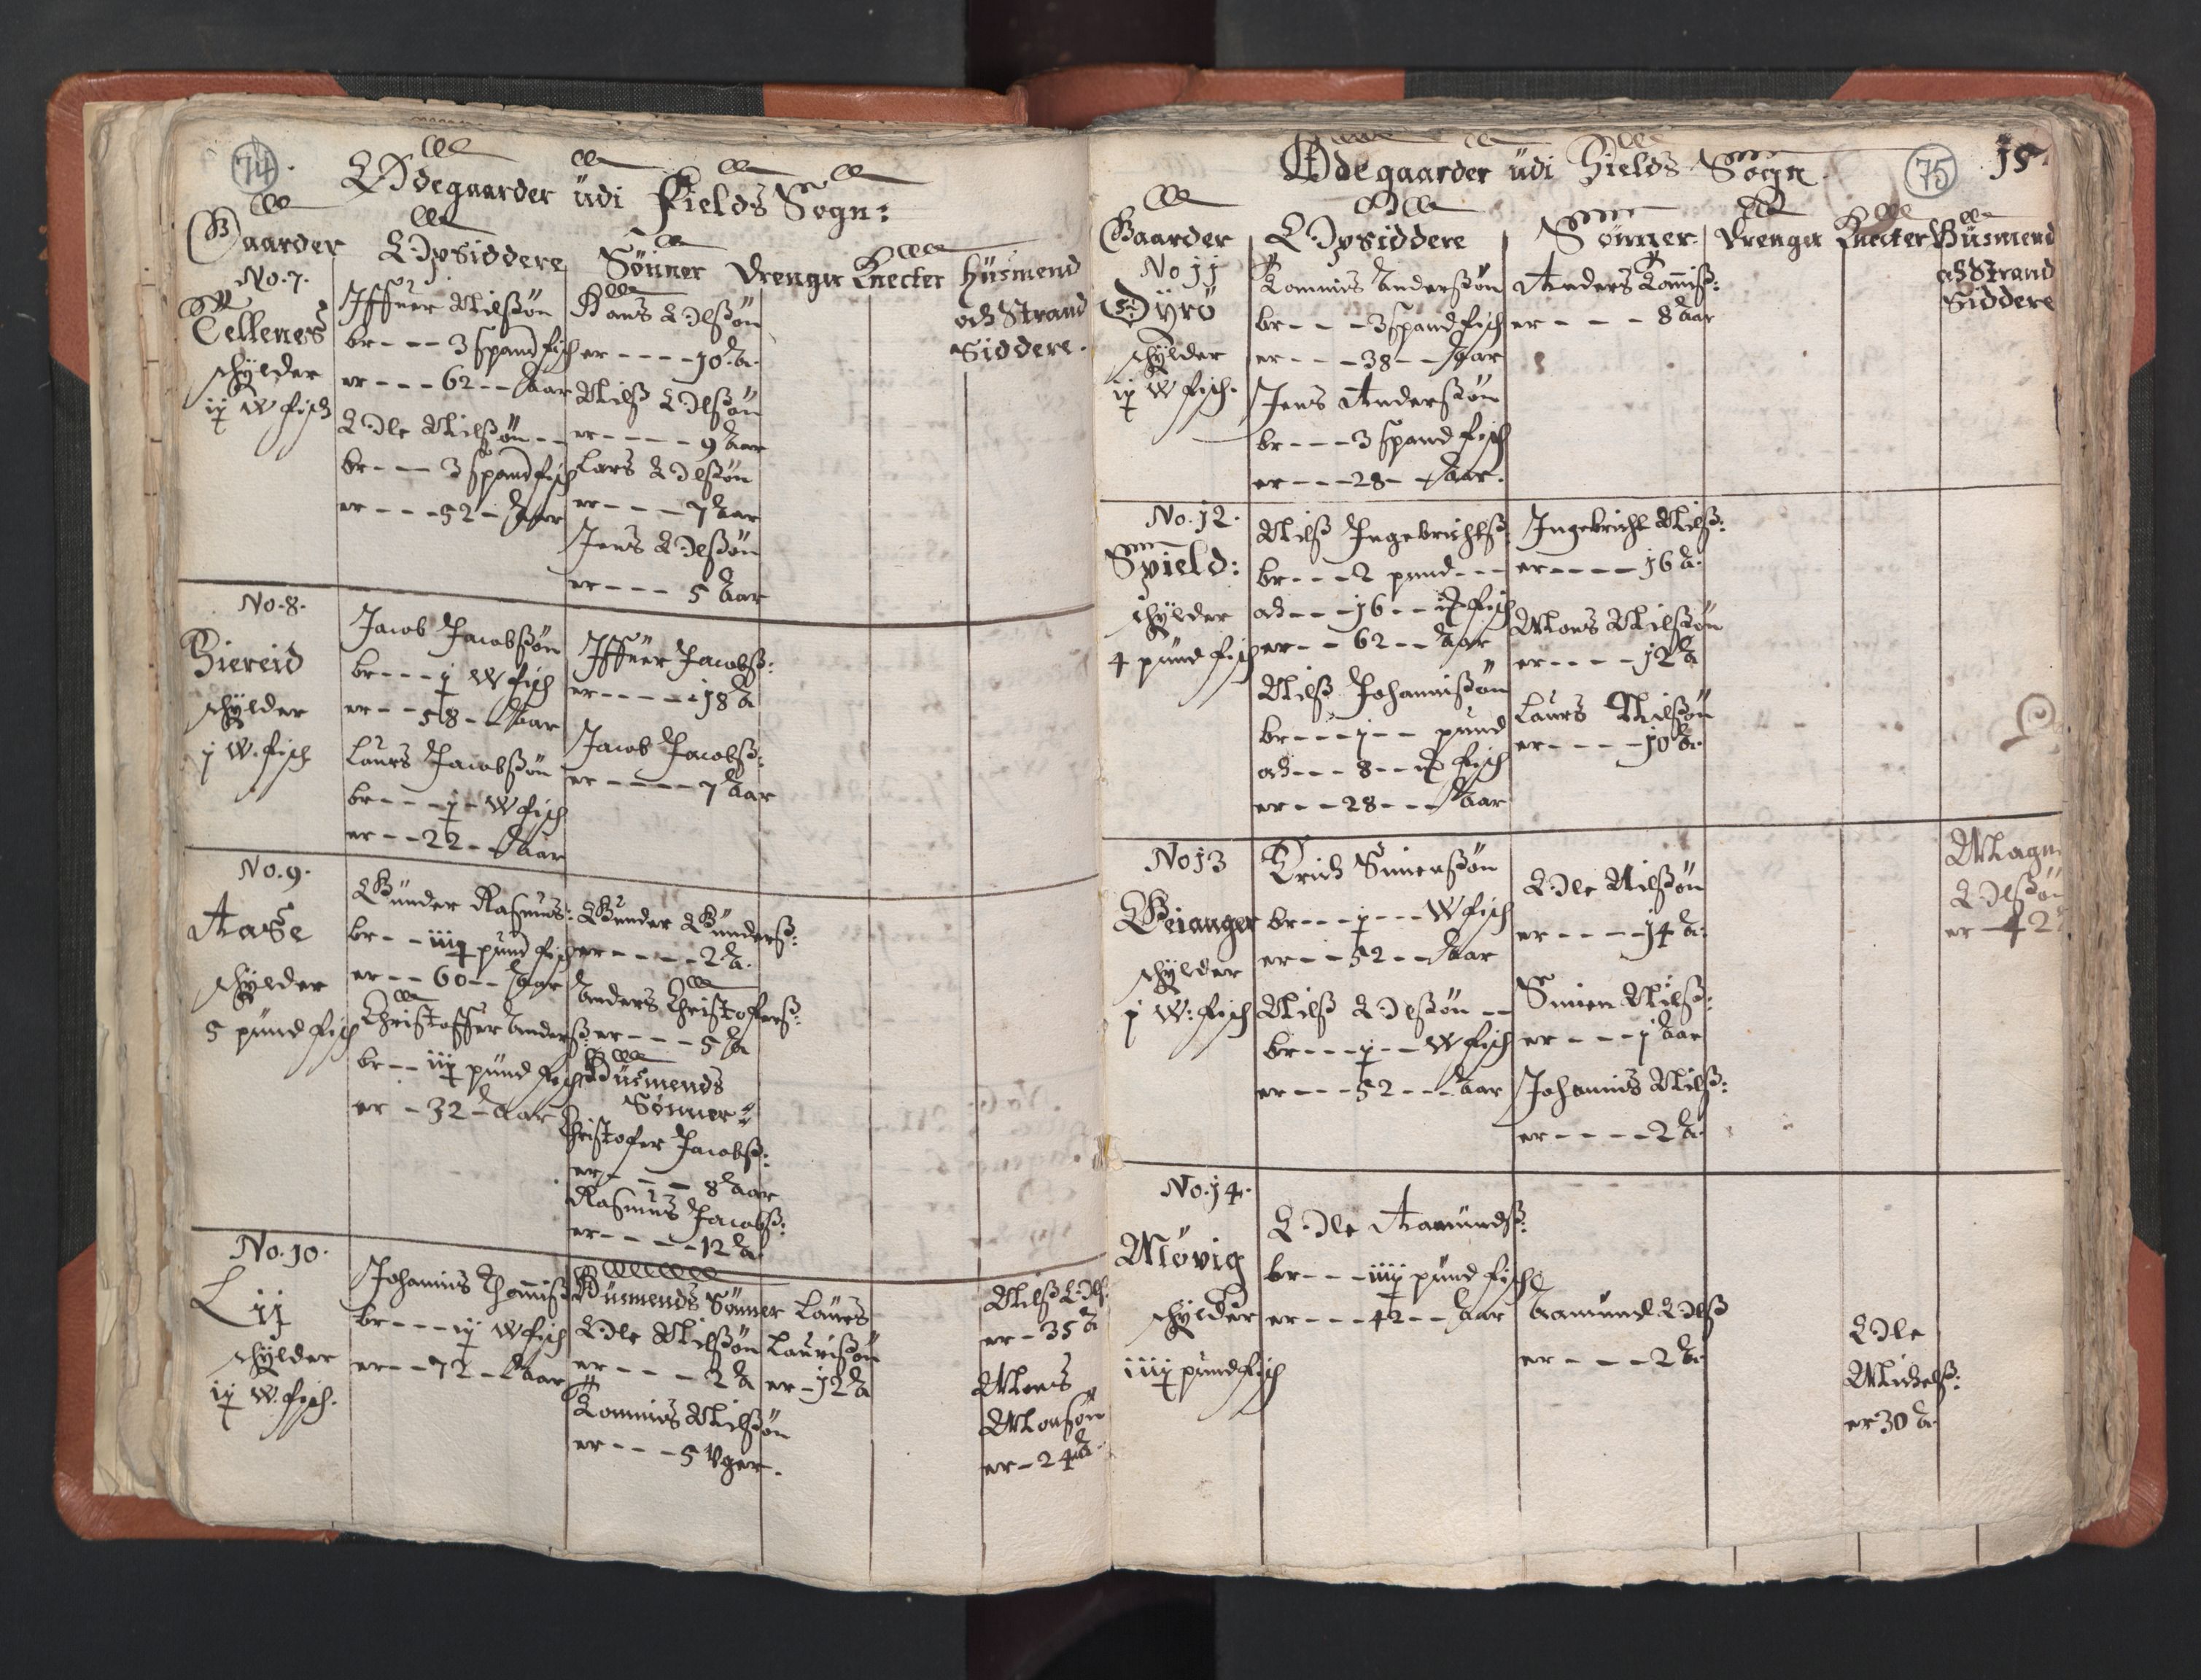 74
Ødegaarder üdi Fields Sogn:
Gaarder
Opsiddere
Sønner
Drenger
Knecter
Hüsmend
och Strand
Siddere.
No. 7.
Tellenes
schÿlder
ij W fisch
Iffuer Nilssøn
br - - - 3 spand fisch
er - - - 62 - - Aar
Ole Nilssøn - -
br - - - 3 spand fisch
er - - - 52 - Aar
Hans Olssøn
er - - - - 10 A.
Nilss Olssøn
er - - - - - 9 Aar
Lars Olssøn
er - - - - 7 Aar
Jens Olssøn
er - - - 5 Aar
No. 8.
Biereid
schÿlder
j W. fisch
Jacob Jacobssøn
br - - - ½ W fisch
er - - 58 - - Aar
Laurs Jacobssøn
br - - - ½ - W fisch
er - - 22 - Aar
Iffuer Jacobss:
er - - - - - 18 A
Jacob Jacobss:
er - - - - - 7 Aar
No. 9.
Aase
schÿlder
5 pünd fisch
Gunder Rasmus:
br - - iij pund fisch
er - - 60 - - Aar
Christoffer Anderss:
br - - iij pund fisch
er - 32 - Aar
Gunder Gunderss:
er - - - - - 2 A.
Anders Christoferss:
er - - - - 5 A
Hüsmends
Sønner:
Christofer Jacobss:
er - - - - 8 Aar
Rasmus Jacobss:
er - - - - - 12 A
No. 10.
Lij
schÿlder
ij W. fisch.
Johannis Thomiss
br - - - ij W fisch
er - - 72 - Aar
Hüsmends Sønner
Ole Nilssøn
er - - - - 2 A
Tommis Nilssøn
er - - - - 5 Vger.
Laurs
Laurissøn
er - 12 A
Nilss Ols:
er - 35 A
Mons
Monsøn
er - 24 A.
75
15.
Ødegaarder üdi Fields Sogn
Gaarder
Opsiddere
Sønner
Drenger
Knecter
Hüsmend
och Strand
Siddere
No 11
Tÿrø
schÿlder
ij W fisch.
Tommis Anderssøn
br - - - 3 spand fisch
er - - - 38 - - Aar
Jens Anderssøn
br - - - 3 spand fisch
er - - - 28 - - Aar.
Anders Tomiss:
er - - - - 8 Aar
No. 12.
Spield:
schÿlder
4 pünd fisch
Nilss Ingebrichtss:
br - - - 2 pund - - -
och - - - 16 - - fisch
er - - 62 - - Aar
Nilss Johannissøn
br - - - j - - pund
och - - - 8 - - fisch
er - - 28 - - - Aar
Ingebricht Nilss:
er - - - - - 16 A.
Mons Nilssøn
er - - - - - 12 A
Laurs Nilssøn
er - - - - - 10 A.
No 13
Geianger
schÿlder
j W: fisch
Erich Simenssøn
br - - - ½ - - - W fisch
er - - - 52 - - - Aar
Nilss Olssøn - -
br - - - ½ - - W fisch
er - - - 52 - - - Aar
Ole Nilssøn
er - - - - - 14 A:
Simen Nilss:
er - - - - j Aar
Johannis Nilss:
er - - - - - 2 A.
Magn
Olssøn
er - 42
No. 14.
Møvig
schÿlder
iiij pünd fisch
Ole Aamünds:
br - - - iiij pünd fisch
er - - - 42 - - Aar
Aamund Olss
er - - - - 2 A.
Ole
Michelss:
er 30 A.